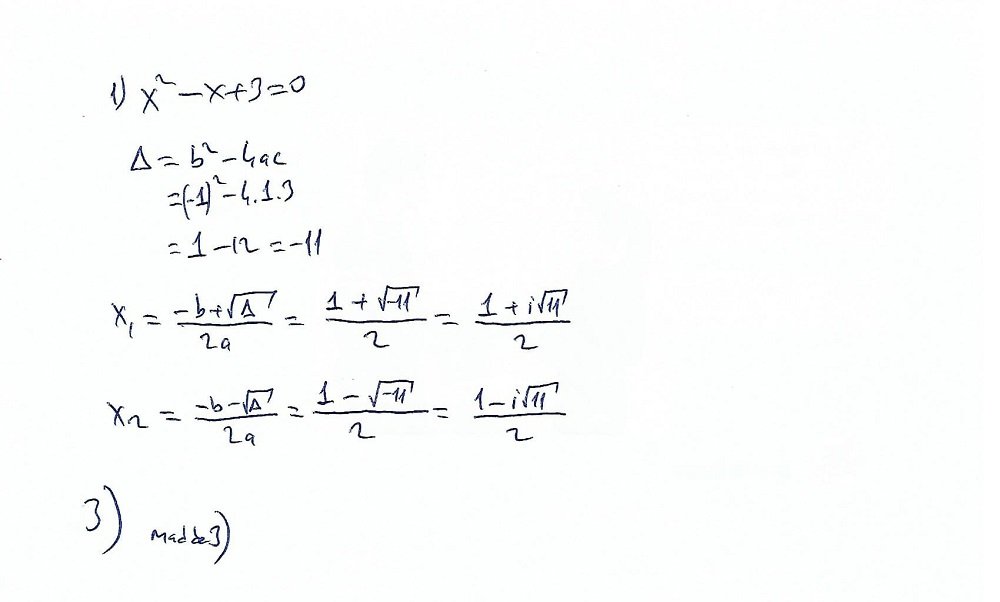 1) x² - x + 3 = 0
Δ = b² - 4ac
= (-1)² - 4.1.3
= 1 - 12 = -11
x₁ = (-b + √Δ) / 2a = (1 + √-11) / 2 = (1 + i√11) / 2
x₂ = (-b - √Δ) / 2a = (1 - √-11) / 2 = (1 - i√11) / 2
3) madde3)